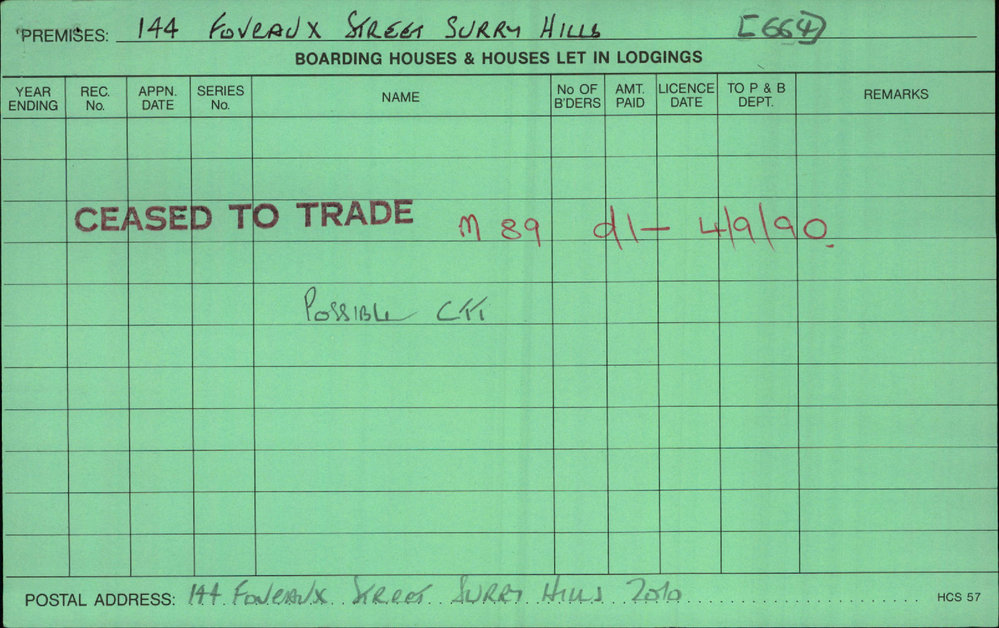 PREMISES: 144 FOVEAUX STREET SURRY HILLS [664]
BOARDING HOUSES & HOUSES LET IN LODGINGS
YEAR ENDING REC. No. APPN. DATE SERIES No. NAME No OF B'DERS AMT. PAID LICENCE DATE TO P & B DEPT. REMARKS
CEASED TO TRADE M 89 d1- 4/9/90
POSSIBLE
POSTAL ADDRESS: 144 FOVEAUX STREET SURRY HILLS 2010 HCS 57